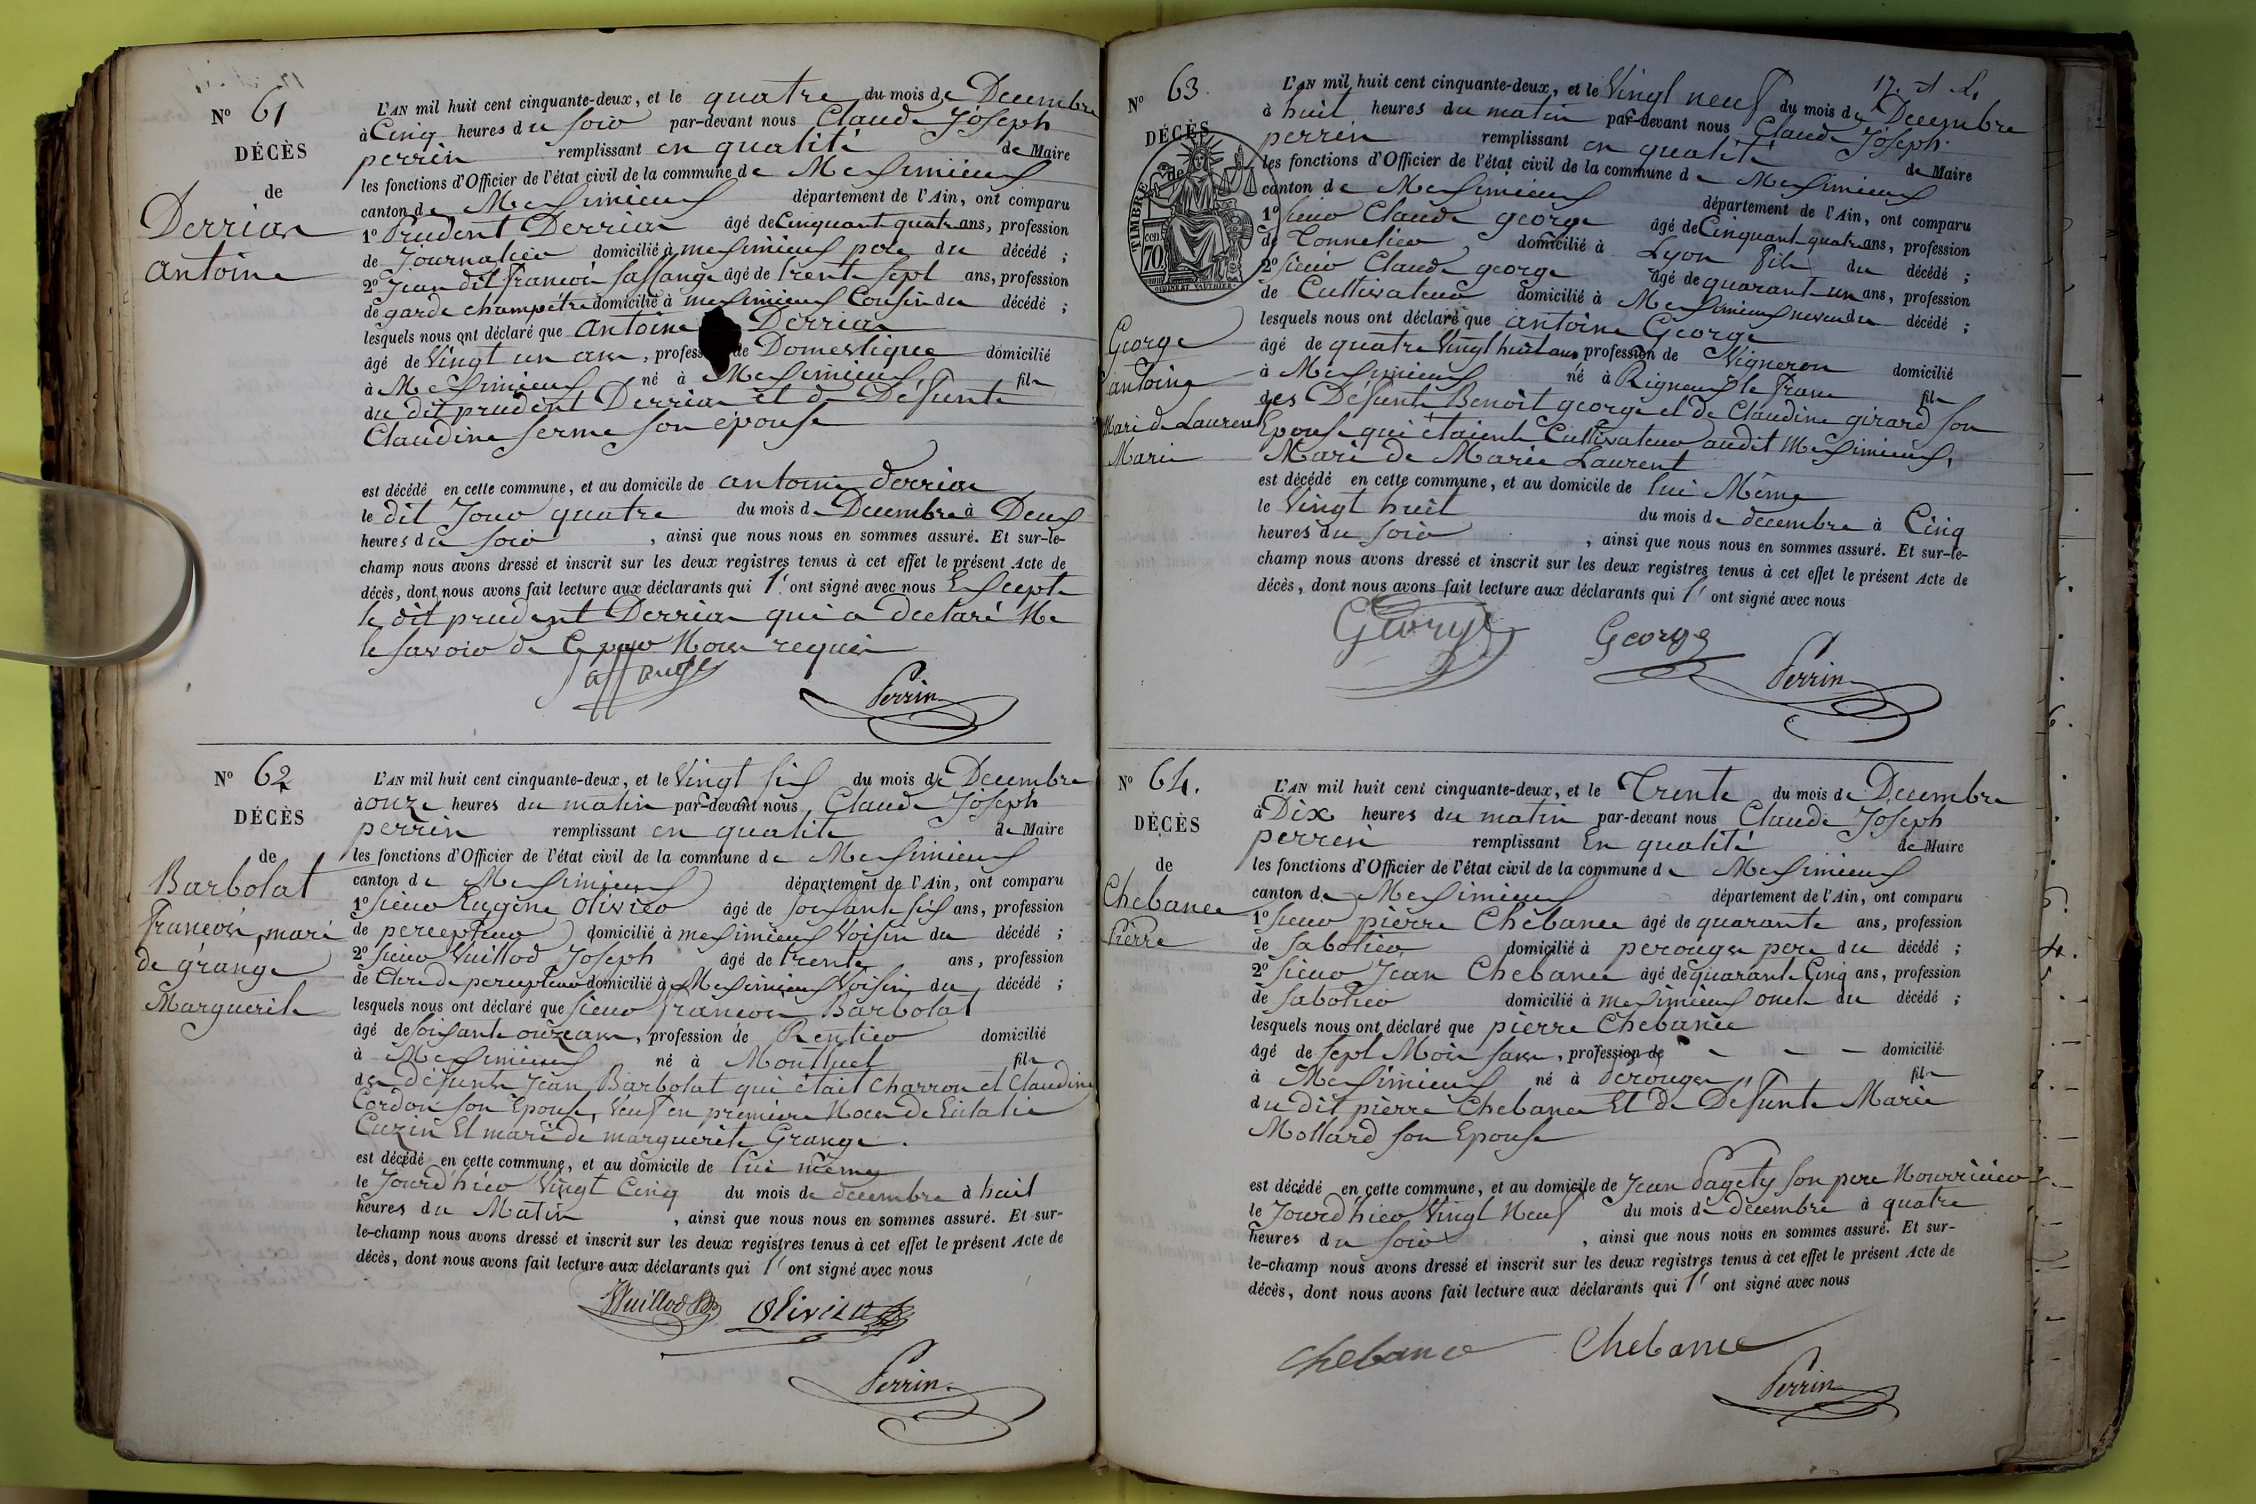 N° 61
DÉCÈS
de
Derrias
antoine
L'AN mil huit cent cinquante-deux, et le quatre du mois de Decembre
à Cinq heures du soir par-devant nous Claude Joseph
perrin remplissant en qualité de Maire
les fonctions d'Officier de l'état civil de la commune de Meximieux
canton de Meximieux département de l'Ain, ont comparu
1° Prudent Derrias âgé de Cinquant quatre ans, profession
de Journalier domicilié à meximieux pere du décédé ;
2° Jean dit françois Saffange âgé de trente sept ans, profession
de garde champêtre domicilié à meximieux Cousin du décédé ;
lesquels nous ont déclaré que antoine Derrias
âgé de Vingt un ans, profess de Domestique domicilié
à Meximieux né à Meximieux fils
du dit prudent Derrias et de Défunte
Claudine ferme son épouse
est décédé en cette commune, et au domicile de antoine derrias
le dit Jour quatre du mois de Decembre à Deux
heures du soir , ainsi que nous nous en sommes assuré. Et sur-le-
champ nous avons dressé et inscrit sur les deux registres tenus à cet effet le présent Acte de
décès, dont nous avons fait lecture aux déclarants qui l' ont signé avec nous Excepté
le dit prudent Derrias qui a declaré Ne
le savoir de Ce par Nous requis
Saffange
Perrin
N° 62
DÉCÈS
de
Barbolat
françois, mari
de grange
Marguerite
L'AN mil huit cent cinquante-deux, et le Vingt six du mois de Decembre
à onze heures du matin par-devant nous Claude Joseph
perrin remplissant en qualité de Maire
les fonctions d'Officier de l'état civil de la commune de Meximieux
canton de Meximieux département de l'Ain, ont comparu
1° sieur Eugène Olivier âgé de soixante six ans, profession
de percepteur domicilié à meximieux Voisin du décédé ;
2° sieur Vuillod Joseph âgé de trente ans, profession
de Clerc de percepteur domicilié à Meximieux Voisin du décédé ;
lesquels nous ont déclaré que sieur françois Barbolat
âgé de soixante onze ans, profession de Rentier domicilié
à Meximieux né à Montluel fils
des défunts Jean Barbolat qui était Charron et Claudine
Cordon son Epouse, Veuf en première Noces de Eulalie
Cuzin Et mari de marguerite Grange.
est décédé en cette commune, et au domicile de lui même
le Jourd'hier Vingt Cinq du mois de decembre à huit
heures du Matin , ainsi que nous nous en sommes assuré. Et sur-
le-champ nous avons dressé et inscrit sur les deux registres tenus à cet effet le présent Acte de
décès, dont nous avons fait lecture aux déclarants qui l' ont signé avec nous
Vuillod
Olivier
Perrin
N° 63.
DÉCÈS
de
TIMBRE
70 cen
George
antoine
Mari de Laurent
Marie
L'AN mil huit cent cinquante-deux, et le Vingt neuf du mois de Decembre
à huit heures du matin par-devant nous Claude Joseph
perrin remplissant en qualité de Maire
les fonctions d'Officier de l'état civil de la commune de Meximieux
canton de Meximieux département de l'Ain, ont comparu
1° sieur Claude george âgé de Cinquant quatre ans, profession
de Tonnelier domicilié à Lyon fils du décédé ;
2° sieur Claude george âgé de quarant un ans, profession
de Cultivateur domicilié à Meximieux neveu du décédé ;
lesquels nous ont déclaré que antoine George
âgé de quatre Vingt huit ans profession de Vigneron domicilié
à Meximieux né à Rigneux le franc fils
des Défunts Benoît george et de Claudine girard son
Epouse qui étaient Cultivateur audit Meximieux,
Mari de Marie Laurent
est décédé en cette commune, et au domicile de lui Même
le Vingt huit du mois de decembre à Cinq
heures du soir , ainsi que nous nous en sommes assuré. Et sur-le-
champ nous avons dressé et inscrit sur les deux registres tenus à cet effet le présent Acte de
décès, dont nous avons fait lecture aux déclarants qui l' ont signé avec nous
George
George
Perrin
N° 64.
DÉCÈS
de
Chebance
Pierre
L'AN mil huit cent cinquante-deux, et le Trente du mois de Decembre
à Dix heures du matin par-devant nous Claude Joseph
perrin remplissant En qualité de Maire
les fonctions d'Officier de l'état civil de la commune de Meximieux
canton de Meximieux département de l'Ain, ont comparu
1° sieur pierre Chebance âgé de quarante ans, profession
de sabotier domicilié à perouges pere du décédé ;
2° sieur Jean Chebance âgé de quarante Cinq ans, profession
de sabotier domicilié à meximieux oncle du décédé ;
lesquels nous ont déclaré que pierre Chebance
âgé de sept Mois sans, profession de - - - domicilié
à Meximieux né à perouges fils
du dit pierre Chebance Et de Défunte Marie
Mollard son Epouse
est décédé en cette commune, et au domicile de Jean Pagety son pere Nourricier
le Jourd'hier Vingt Neuf du mois de decembre à quatre
heures du soir , ainsi que nous nous en sommes assuré. Et sur-
le-champ nous avons dressé et inscrit sur les deux registres tenus à cet effet le présent Acte de
décès, dont nous avons fait lecture aux déclarants qui l' ont signé avec nous
Chebance
Chebance
Perrin